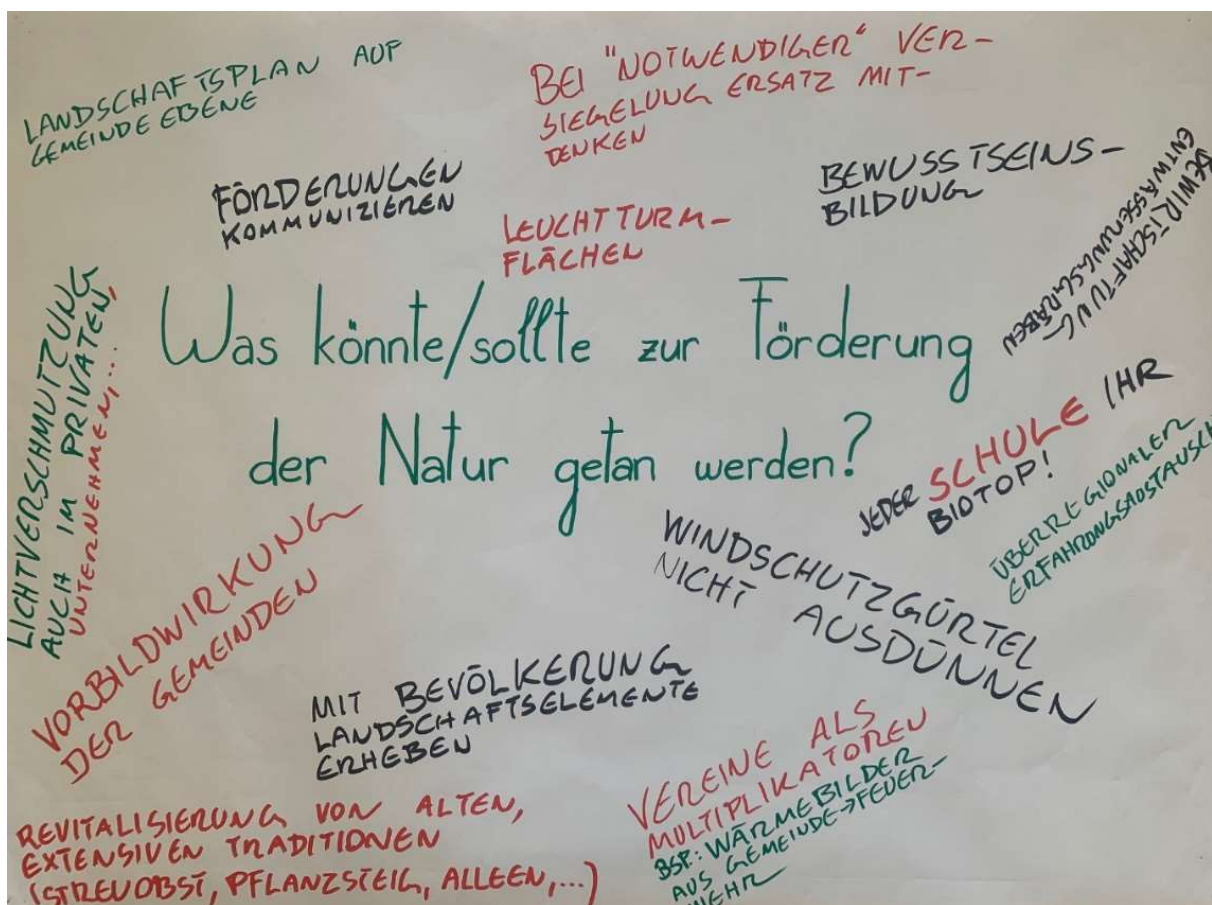 LANDSCHAFTSPLAN AUF
GEMEINDEEBENE
BEI "NOTWENDIGER" VER-
SIEGELUNG ERSATZ MIT-
DENKEN
FÖRDERUNGEN
KOMMUNIZIEREN
LEUCHTTURM-
FLÄCHEN
BEWUSSTSEINS-
BILDUNG
BEWIRTSCHAFTUNG
ENTWÄSSERUNGSGRÄBEN
Was könnte/sollte zur Förderung
der Natur getan werden?
LICHTVERSCHMUTZUNG
AUCH IM PRIVATEN,
UNTERNEHMEN,...
JEDER SCHULE IHR
BIOTOP!
ÜBERREGIONALER
ERFAHRUNGSAUSTAUSCH
VORBILDWIRKUNG
DER GEMEINDEN
WINDSCHUTZGÜRTEL
NICHT AUSDÜNNEN
MIT BEVÖLKERUNG
LANDSCHAFTSELEMENTE
ERHEBEN
VEREINE ALS
MULTIPLIKATOREN
BSP.: WÄRMEBILDER
AUS GEMEINDE→FEUER-
WEHR
REVITALISIERUNG VON ALTEN,
EXTENSIVEN TRADITIONEN
(STREUOBST, PFLANZSTEIG, ALLEEN,...)